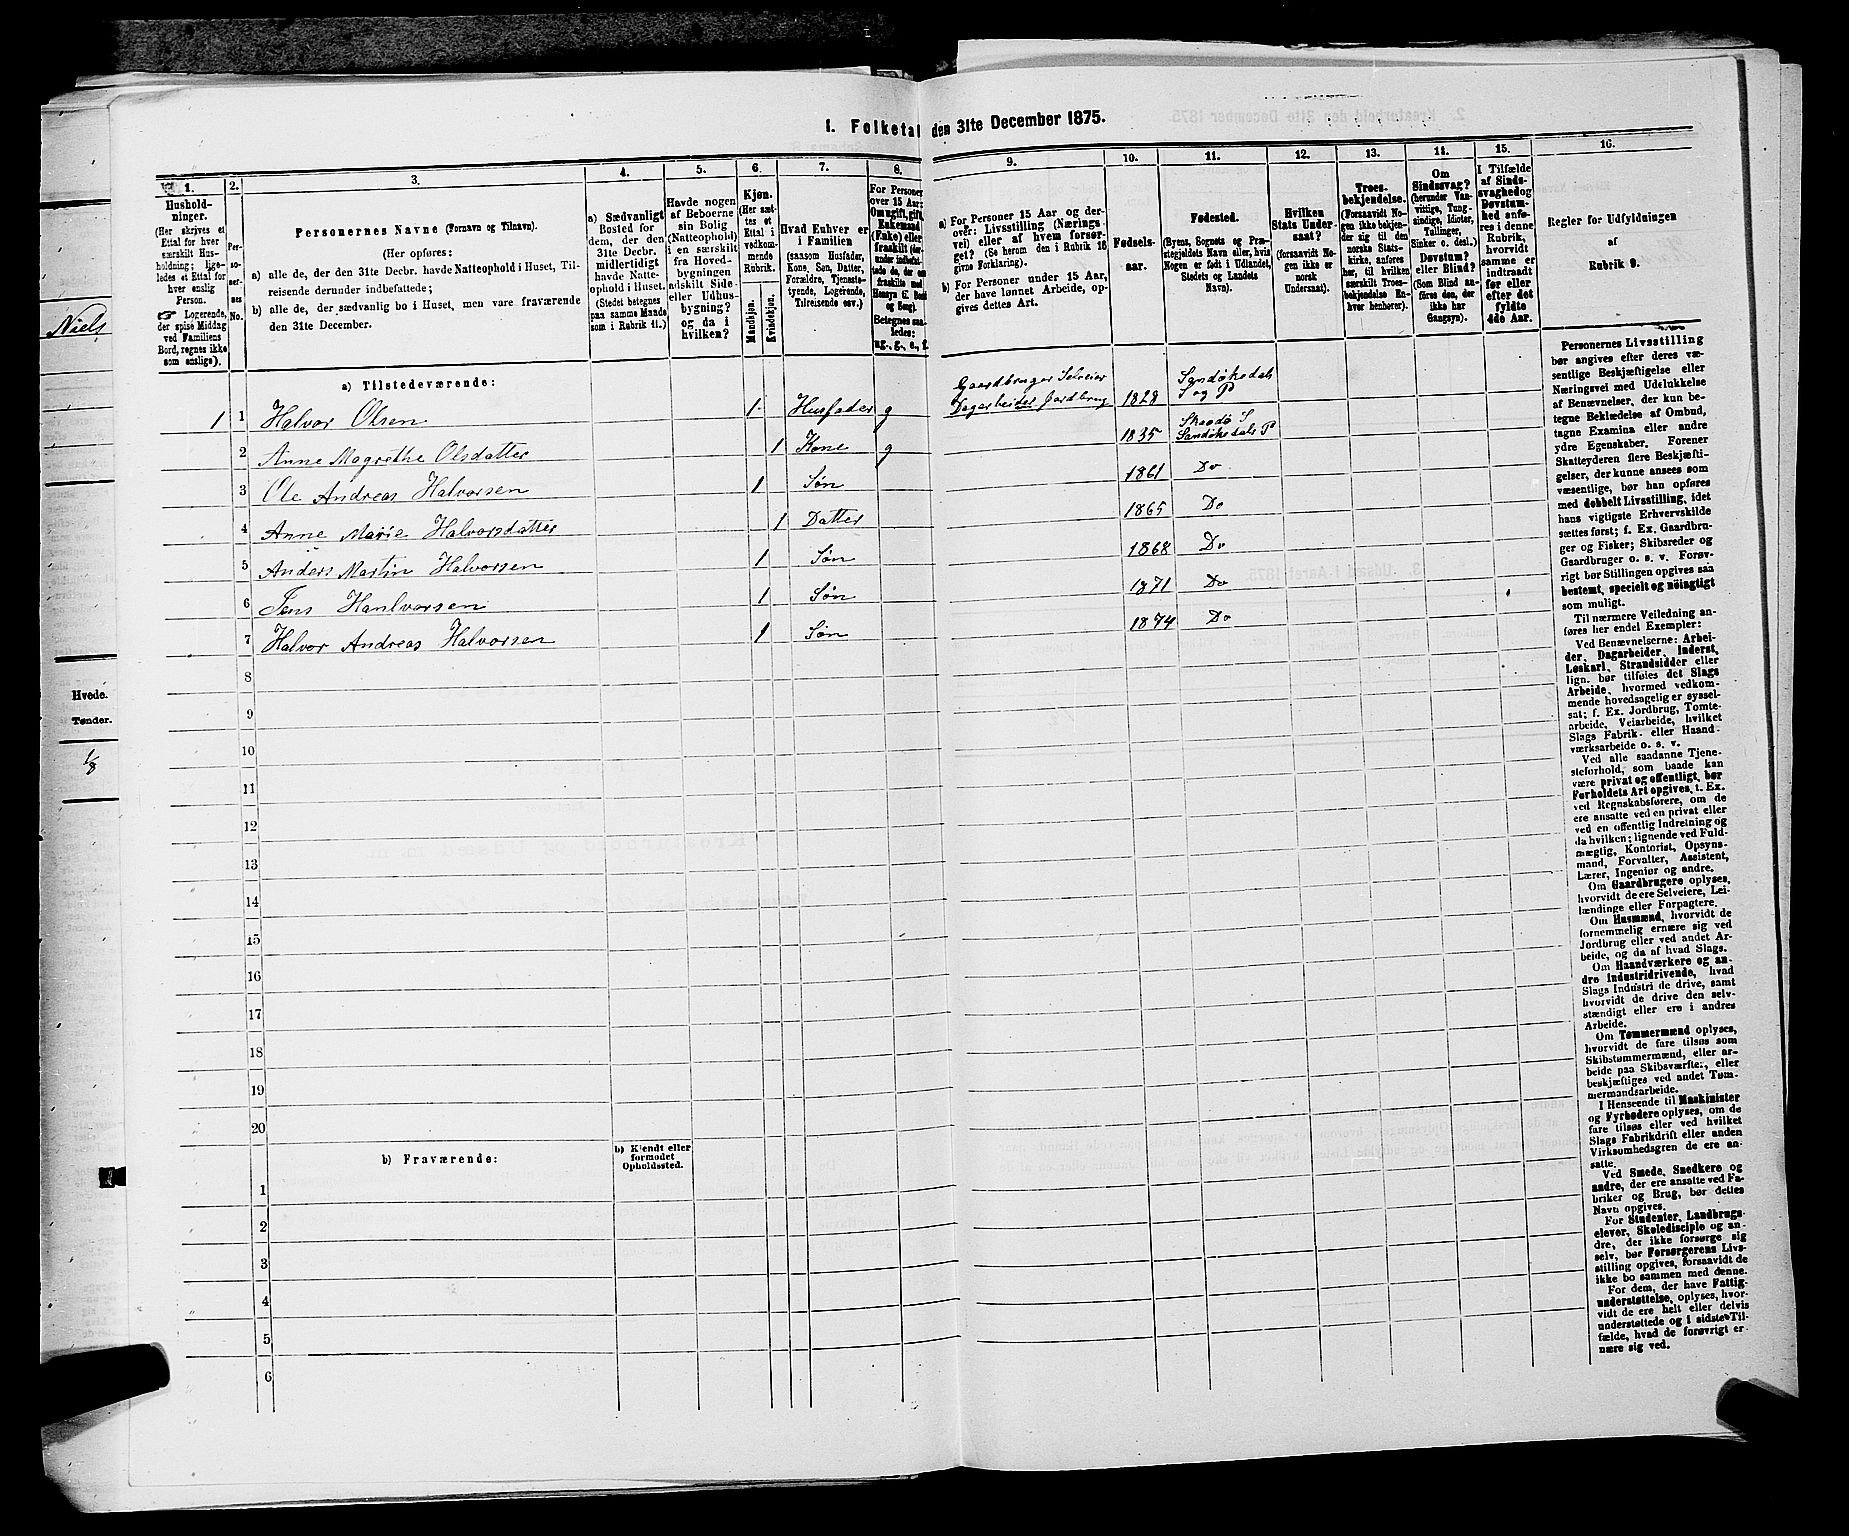 1. Folketal den 31te December 1875.
1.
Hushold-
ninger.
(Her skrives et
Ettal for hver
særskilt Hus-
holdning; lige-
ledes et Ettal for
hver enslig
Person.
☞ Logerende,
der spise Middag
ved Familiens
Bord, regnes ikke
som enslige).
2.
Per-
so-
ner-
nes
No.
3.
Personernes Navne (Fornavn og Tilnavn).
(Her opføres:
a) alle de, der den 31te Decbr. havde Natteophold i Huset, Til-
reisende derunder indbefattede;
b) alle de, der sædvanlig bo i Huset, men vare fraværende
den 31te December.
4.
a) Sædvanligt
Bosted for
dem, der den
31te Decbr.
midlertidigt
havde Natte-
ophold i Huset.
(Stedet betegnes
paa samme Maade
som i Rubrik 11.)
5.
Havde nogen
af Beboerne
sin Bolig
(Natteophold)
i en særskilt
fra Hoved-
bygningen
adskilt Side-
eller Udhus-
bygning?
og da i
hvilken?
6.
Kjøn.
(Her sæt-
tes et
Ettal i
vedkom-
mende
Rubrik.
Mandkjøn.
Kvindekjøn.
7.
Hvad Enhver er
i Familien
(saasom Husfader,
Kone, Søn, Datter,
Forældre, Tjeneste-
tyende, Logerende,
Tilreisende osv.)
8.
For Personer
over 15 Aar:
Om ugift, gift,
Enkemand
(Enke) eller
fraskilt
Betegnes saa-
ledes:
ug., g., e., f.
9.
a) For Personer 15 Aar og der-
over: Livsstilling (Nærings-
vei) eller af hvem forsør-
get? (Se herom den i Rubrik 16
givne Forklaring).
b) For Personer under 15 Aar,
der have lønnet Arbeide, op-
gives dettes Art.
10.
Fødsels-
aar.
11.
Fødested.
(Byens, Sognets og Præ-
stegjeldets Navn eller, hvis
Nogen er født i Udlandet,
Stedets og Landets
Navn).
12.
Hvilken
Stats Under-
saat?
(forsaavidt No-
gen ikke er
norsk
Undersaat).
13.
Troes-
bekjendelse.
(Forsaavidt No-
gen ikke bekjen-
der sig til den
norske Stats-
kirke, anføres
her, til hvilken
særskilt Troes-
bekjendelse En-
hver henhører).
14.
Om
Sindssvag?
(herunder Van-
vittige, Tung-
sindige, Idioter,
Tullinger,
Sinker o. desl.)
Døvstum?
eller Blind?
(Som Blind an-
føres den, der
ikke har
Gangsyn).
15.
I Tilfælde
af Sinds-
svaghed og
Døvstum-
hed anfø-
res i denne
Rubrik,
hvorvidt
samme er
indtraadt
før eller
efter det
fyldte
4de Aar.
16.
Regler for Udfyldningen
af
Rubrik 9.
a) Tilstedeværende:
Gaardbruger Selveier Sandøkedals
1 1 Halvor Olsen 1 Husfader g Dagarbeider Jordbrug 1828 S og P
Skaadø S
2 Anne Magrethe Olsdatter 1 Kone g 1835 Sandøkedals P
3 Ole Andreas Halvorsen 1 Søn 1861 Do
4 Anne Marie Halvorsdatter 1 Datter 1865 Do
5 Anders Martin Halvorsen 1 Søn 1868 Do
6 Jens Hanlvorsen 1 Søn 1871 Do
7 Halvor Andreas Halvorsen 1 Søn 1874 Do
8
9
10
11
12
13
14
15
16
17
18
19
20
b) Fraværende:
b) Kjendt eller
formodet
Opholdssted.
1
2
3
4
5
6
Personernes Livsstilling
bør angives efter deres væ-
sentlige Beskjæftigelse eller
Næringsvei med Udelukkelse
af Benævnelser, der kun be-
tegne Beklædelse af Ombud,
tagne Examina eller andre
ydre Egenskaber. Forener
Skatteyderen flere Beskjæfti-
gelser, der kunne ansees som
væsentlige, bør han opføres
med dobbelt Livsstilling, idet
hans vigtigste Erhvervskilde
sættes først; f. Ex. Gaardbru-
ger og Fisker; Skibsreder og
Gaardbruger o. s. v. Forøv-
rigt bør Stillingen opgives saa
bestemt, specielt og nöiagtigt
som muligt.
Til nærmere Veiledning an-
føres her endel Exempler:
Ved Benævnelserne: Arbei-
der, Dagarbeider, Inderst,
Løskarl, Strandsidder eller
lign. bør tilføies det Slags
Arbeide, hvormed vedkom-
mende hovedsagelig er syssel-
sat; f. Ex. Jordbrug, Tomte-
arbeide, Veiarbeide, hvilket
Slags Fabrik- eller Haand-
værksarbeide o. s. v.
Ved alle saadanne Tjene-
steforhold, som baade kan
være privat og offentligt, bør
Forholdets Art opgives, f. Ex.
ved Regnskabsførere, om de
ere ansatte ved en privat eller
ved en offentlig Indretning og
da hvilken; lignende ved Fuld-
mægtig, Kontorist, Opsyns-
mand, Forvalter, Assistent,
Lærer, Ingeniør og andre.
Om Gaardbrugere oplyses,
hvorvidt de ere Selveiere, Lei-
lændinge eller Forpagtere.
Om Husmænd, hvorvidt de
fornemmelig ernære sig ved
Jordbrug eller ved andet Ar-
beide, og da af hvad Slags.
Om Haandværkere og an-
dre Industridrivende, hvad
Slags Industri de drive, samt
hvorvidt de drive den selv-
stændigt eller ere i andres
Arbeide.
Om Tømmermænd oplyses,
hvorvidt de fare tilsøs som
Skibstømmermænd, eller ar-
beide paa Skibsværfter, eller
beskjæftiges ved andet Tøm-
mermandsarbeide.
I Henseende til Maskinister
og Fyrbødere oplyses, om de
fare tilsøs eller ved hvilket
Slags Fabrikdrift eller anden
Virksomhedsgren de ere an-
satte.
Ved Smede, Snedkere og
andre, der ere ansatte ved Fa-
briker og Brug, bør dettes
Navn opgives.
For Studenter, Landbrugs-
elever, Skoledisciple og an-
dre, der ikke forsørge sig
selv, bør Forsørgerens Livs-
stilling opgives, forsaavidt de
ikke bo sammen med denne.
For dem, der have Fattig-
understøttelse, oplyses, hvor-
vidt de ere helt eller delvis
understøttede og i sidste Til-
fælde, hvad de forøvrigt er-
nære sig ved.
Niels
Hvede.
Tønder.
1/8